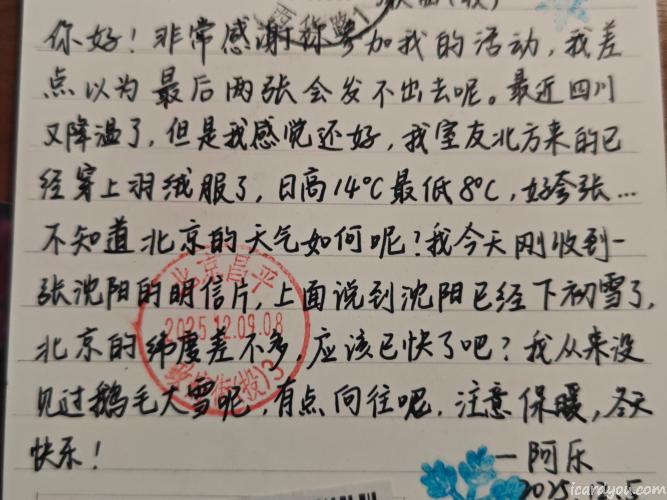 你好！非常感谢你参加我的活动，我差
点以为最后两张会发不出去呢。最近四川
又降温了，但是我感觉还好，我室友北方来的已
经穿上羽绒服了，日高14°C最低8°C，好夸张…
不知道北京的天气如何呢？我今天刚收到一
张沈阳的明信片，上面说到沈阳已经下初雪了，
北京的纬度差不多，应该已快了吧？我从来没
见过鹅毛大雪呢，有点向往呢，注意保暖，冬天
快乐！
—阿乐
北京昌平
2025.12.09.08
icardyou.com